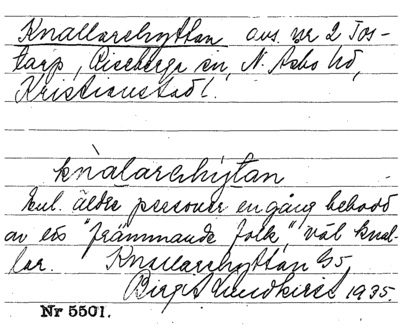 Knallarehyttan avs. nr 2 Tos-
tarp, Riseberga sn, N. Åsbo hd,
Kristianstads l.
knàlarehỳtan
Enl. äldre personer en gång bebodd
av ett "främmande folk," väl knal-
lar. Knallarehyttan G5,
Birgit Lundkvist 1935.
Nr 5501.